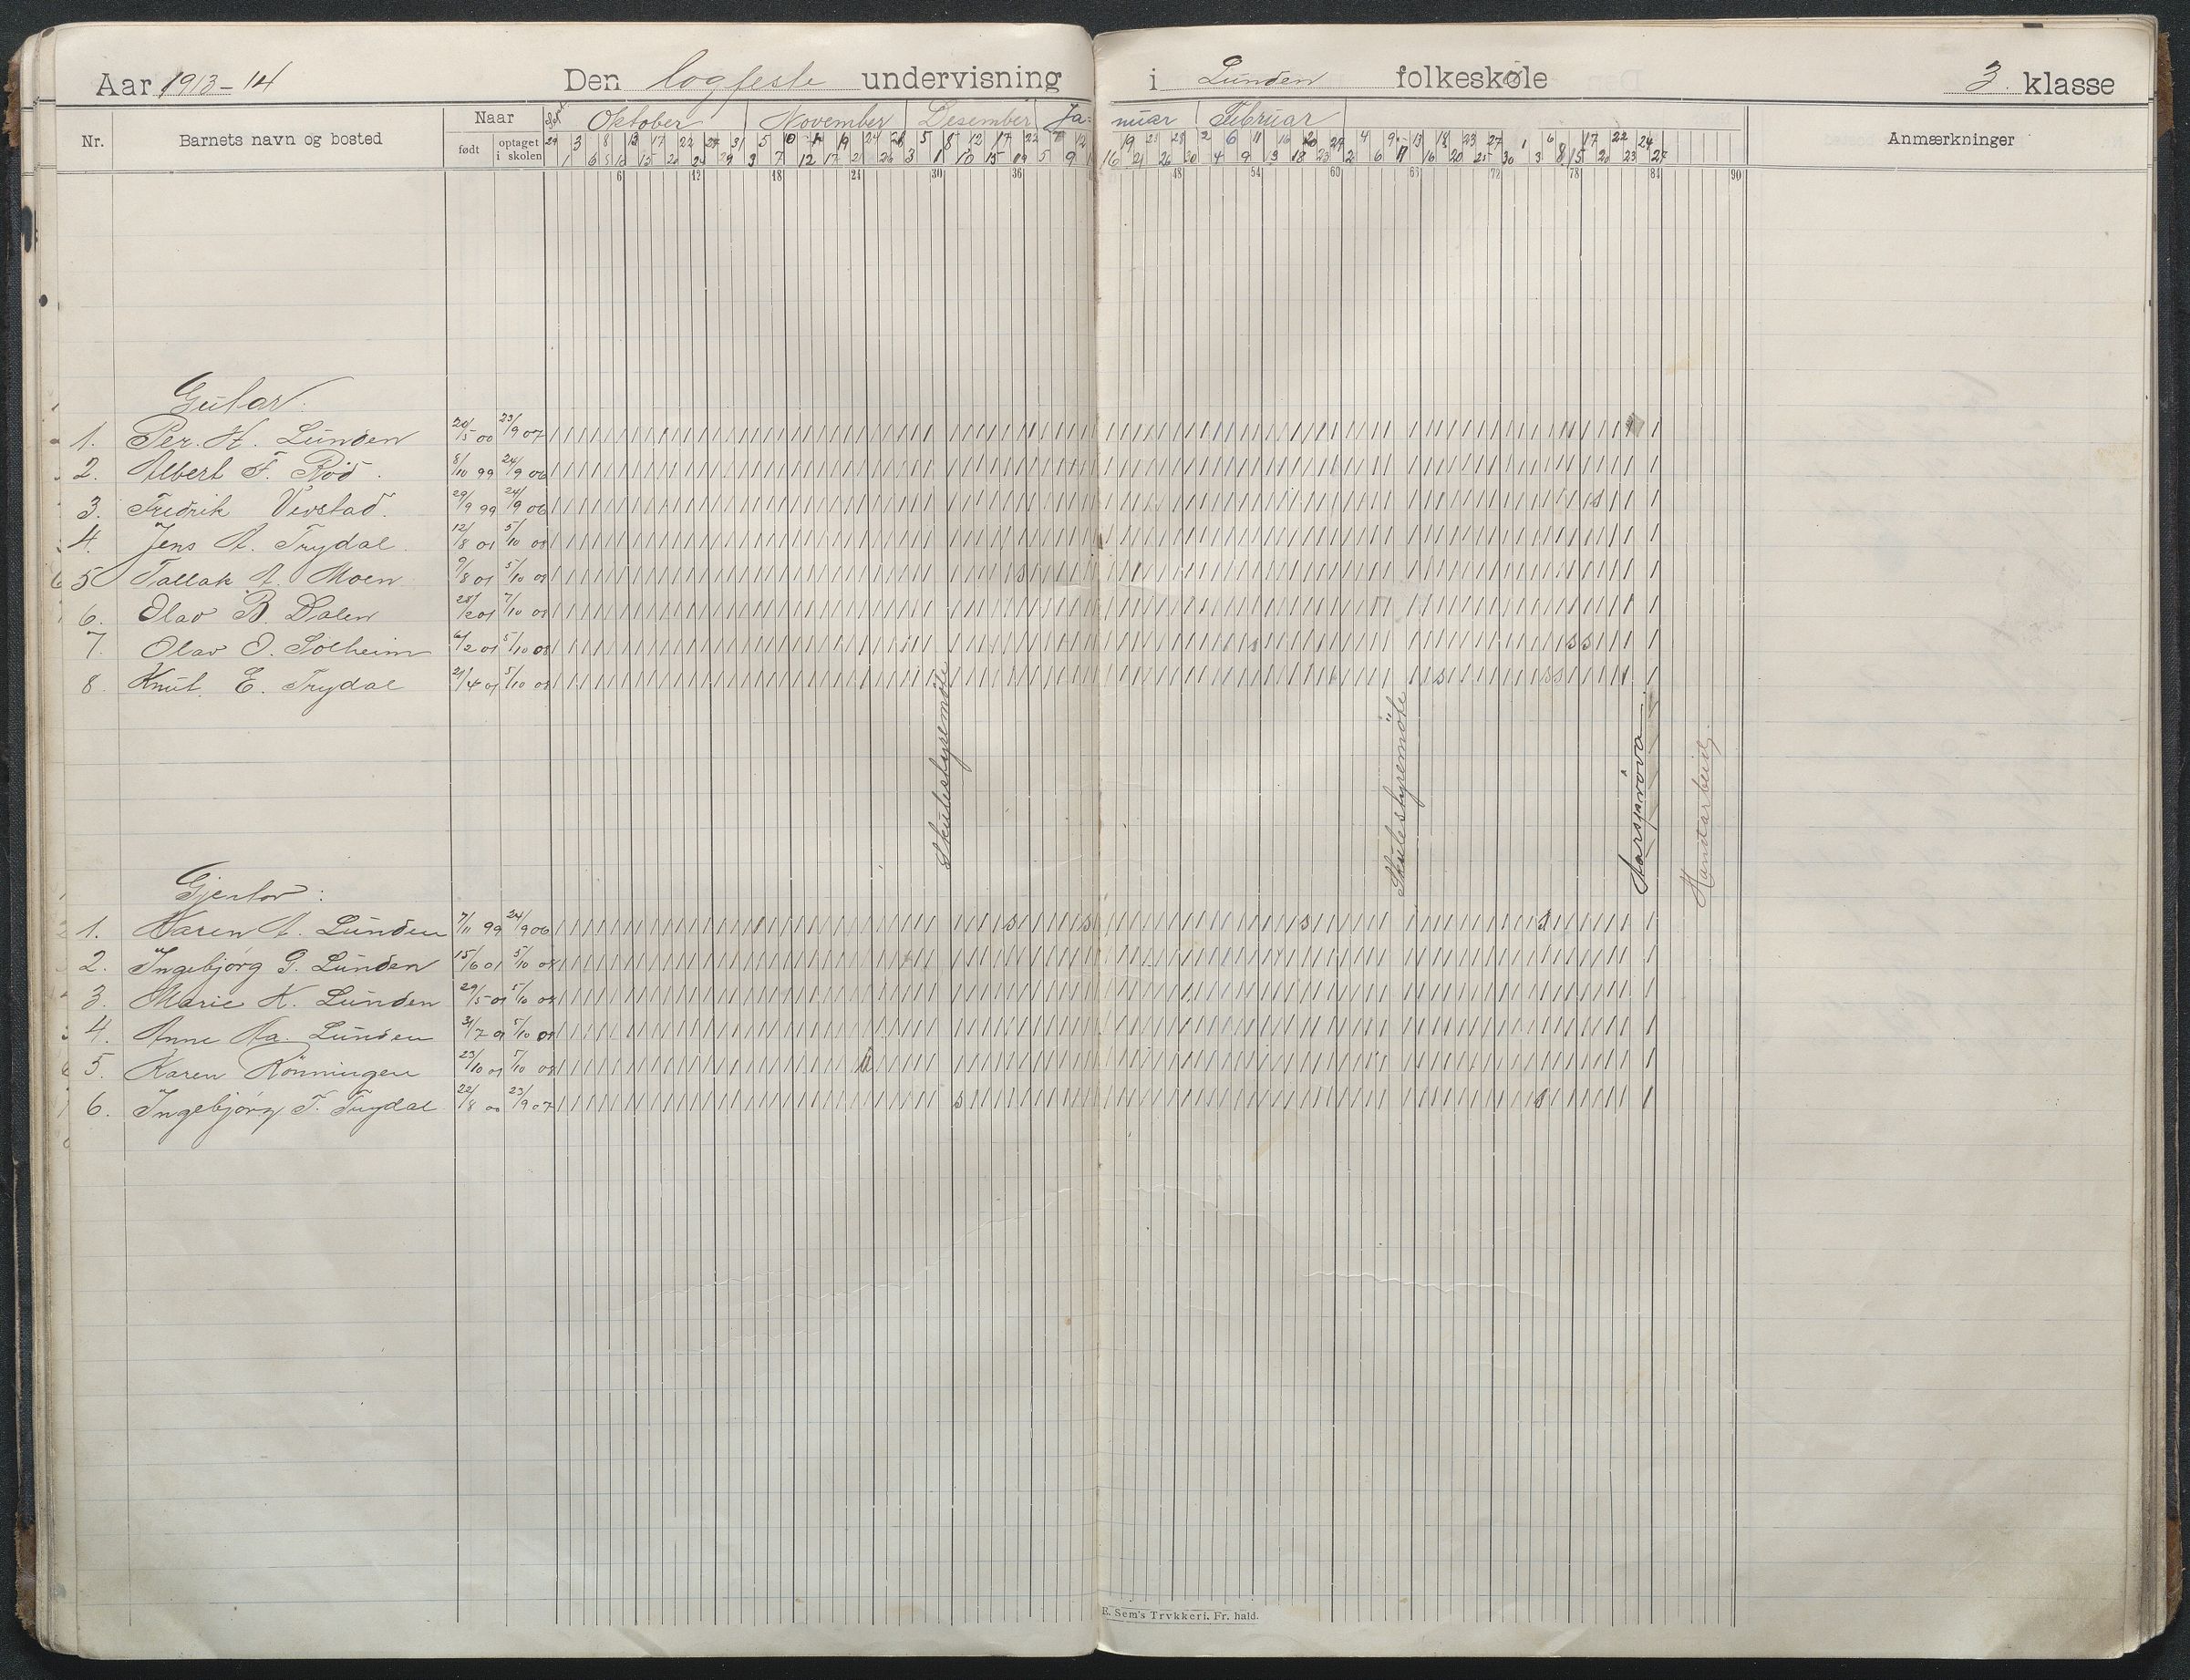 Aar 1913-14 Den logfeste undervisning i Lunden folkeskole 3. klasse
Nr. Barnets navn og bosted Naar Oktober November Desember Ja- nuar Februar Anmærkninger
født optaget i skolen
6 12 18 24 30 36 48 54 60 66 72 78 84 90
Gutar.
1. Per. H. Lunden 20/5 00 23/9 07
2. Albert F. Röd. 8/10 99 24/9 06
3. Fredrik Verstad. 29/9 99 24/9 06
4. Jens A. Trydal. 12/8 01 5/10 08
5 Tallak A. Moen 9/8 01 5/10 08
6. Olav B. Dalen 28/2 01 7/10 08
7. Olav O. Solheim 6/2 01 5/10 08
8. Knut. E. Trydal 21/4 01 5/10 08
Skulestyremöte
Skulestyremöte
Aarspröva
Handarbeid
Gjentor:
1. Karen A. Lunden 7/11 99 24/9 06
2. Ingebjörg G. Lunden 15/6 01 5/10 08
3. Marie K. Lunden 29/5 01 5/10 08
4. Anne Aa. Lunden 31/7 01 5/10 08
5. Karen Rönningen 23/10 01 5/10 08
6. Ingebjörg T. Trydal 22/8 00 23/9 07
E. Sem's Trykkeri. Fr. hald.